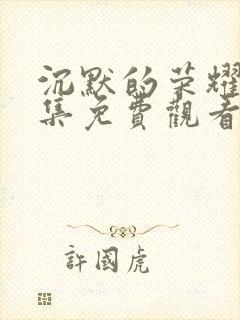 沉默的荣耀
集免費觀看
許國虎